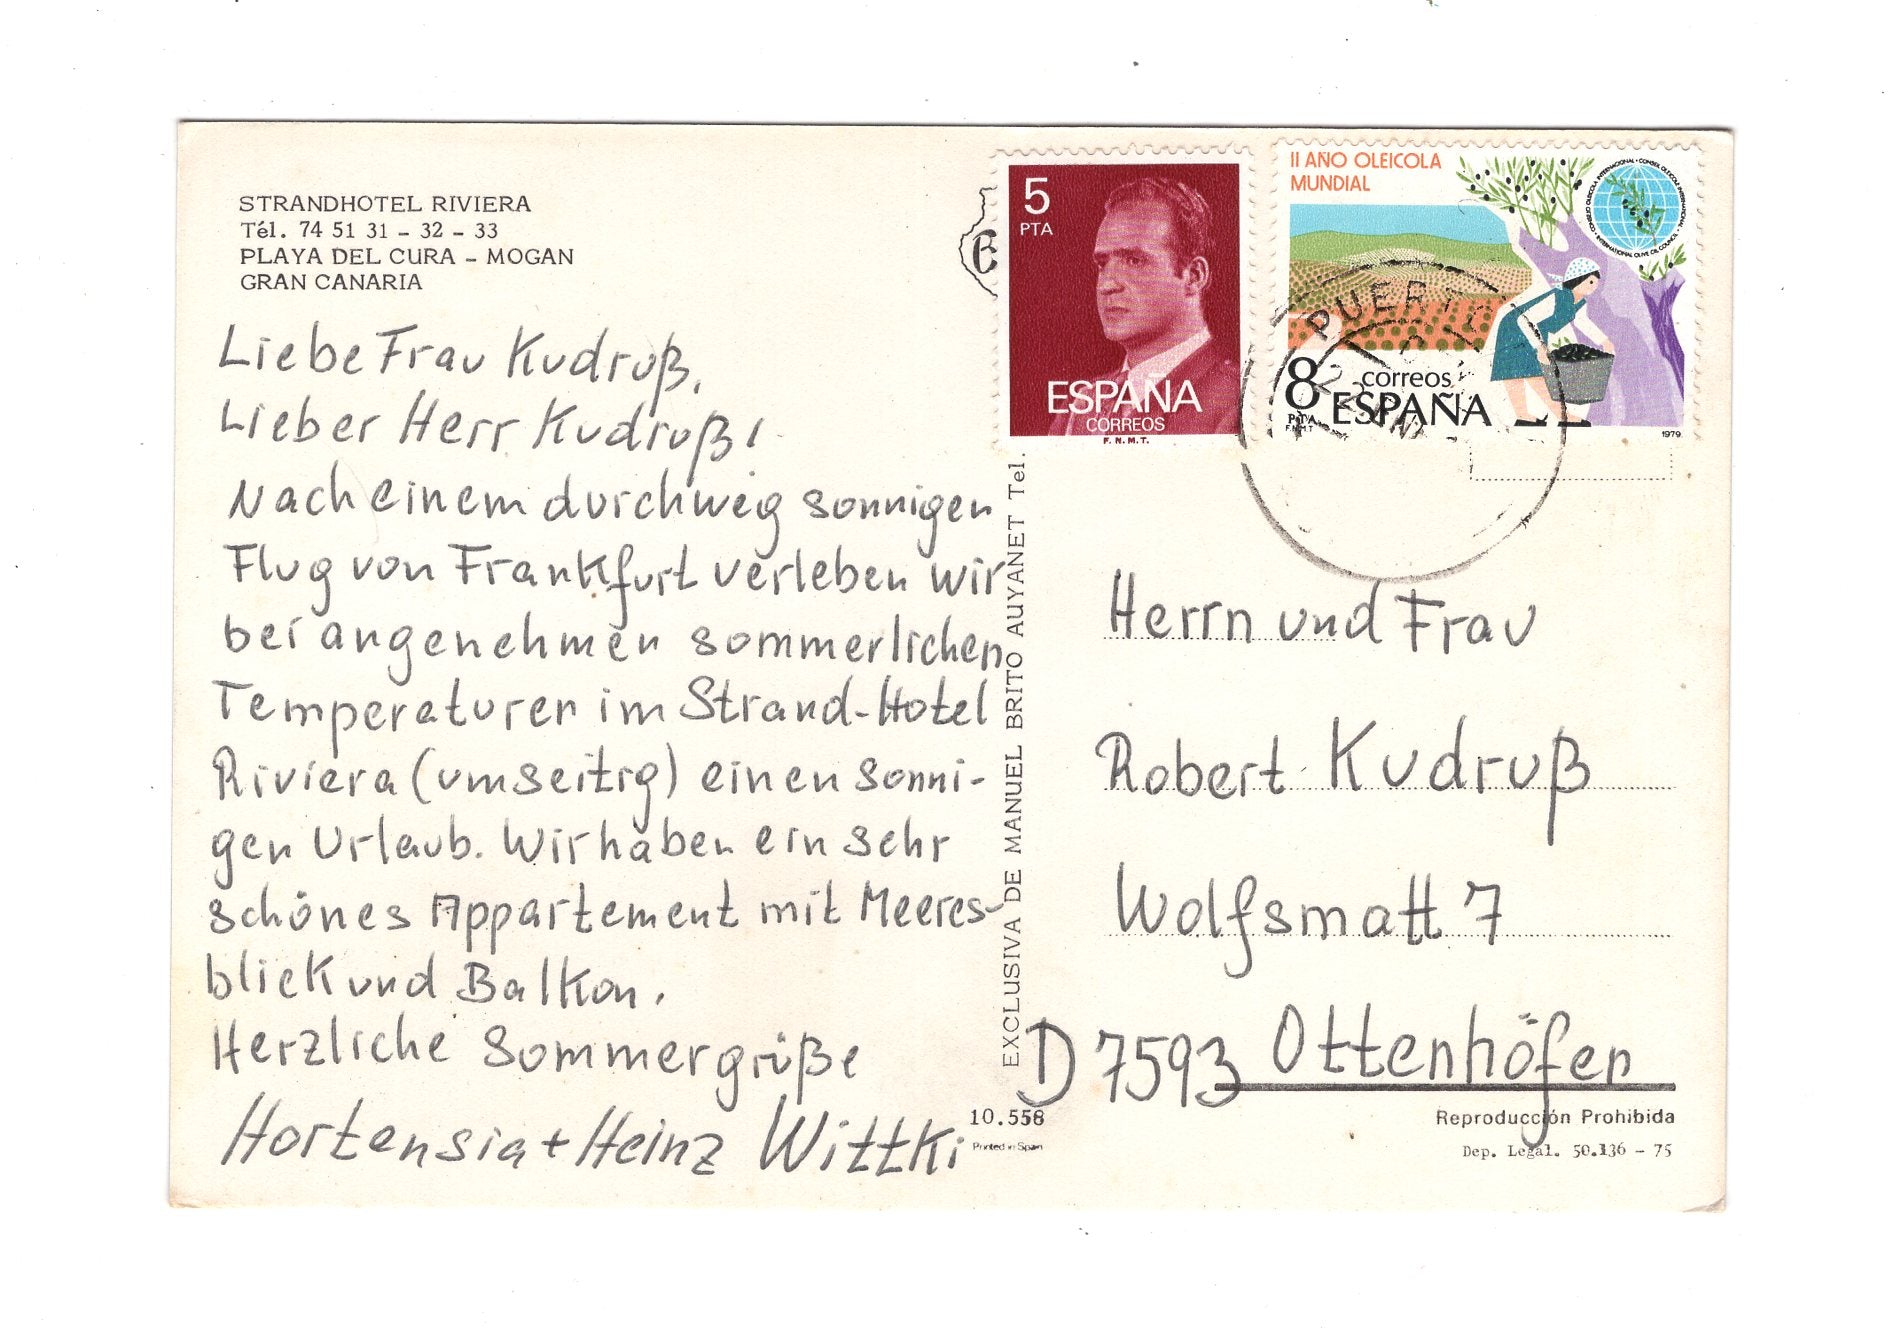 STRANDHOTEL RIVIERA
Tél. 74 51 31 - 32 - 33
PLAYA DEL CURA - MOGAN
GRAN CANARIA
Liebe Frau Kudruß,
Lieber Herr Kudruß!
Nach einem durchweg sonnigen
Flug von Frankfurt verleben wir
bei angenehmen sommerlichen
Temperaturen im Strand-Hotel
Riviera (umseitig) einen sonni-
gen Urlaub. Wir haben ein sehr
schönes Appartement mit Meeres-
blick und Balkon.
Herzliche Sommergrüße
Hortensia + Heinz Wittki
EXCLUSIVA DE MANUEL BRITO AUYANET Tel.
10.558
Printed in Spain
5
PTA
ESPAÑA
CORREOS
F.N.M.T.
II AÑO OLEICOLA
MUNDIAL
CONSEJO OLEICOLA INTERNACIONAL • CONSEIL OLEICOLE INTERNATIONAL • INTERNATIONAL OLIVE OIL COUNCIL
8
PTA
F.N.M.T
correos
ESPAÑA
1979
PUERTO
Herrn und Frau
Robert Kudruß
Wolfsmatt 7
D 7593 Ottenhöfen
Reproducción Prohibida
Dep. Legal. 50.136 - 75